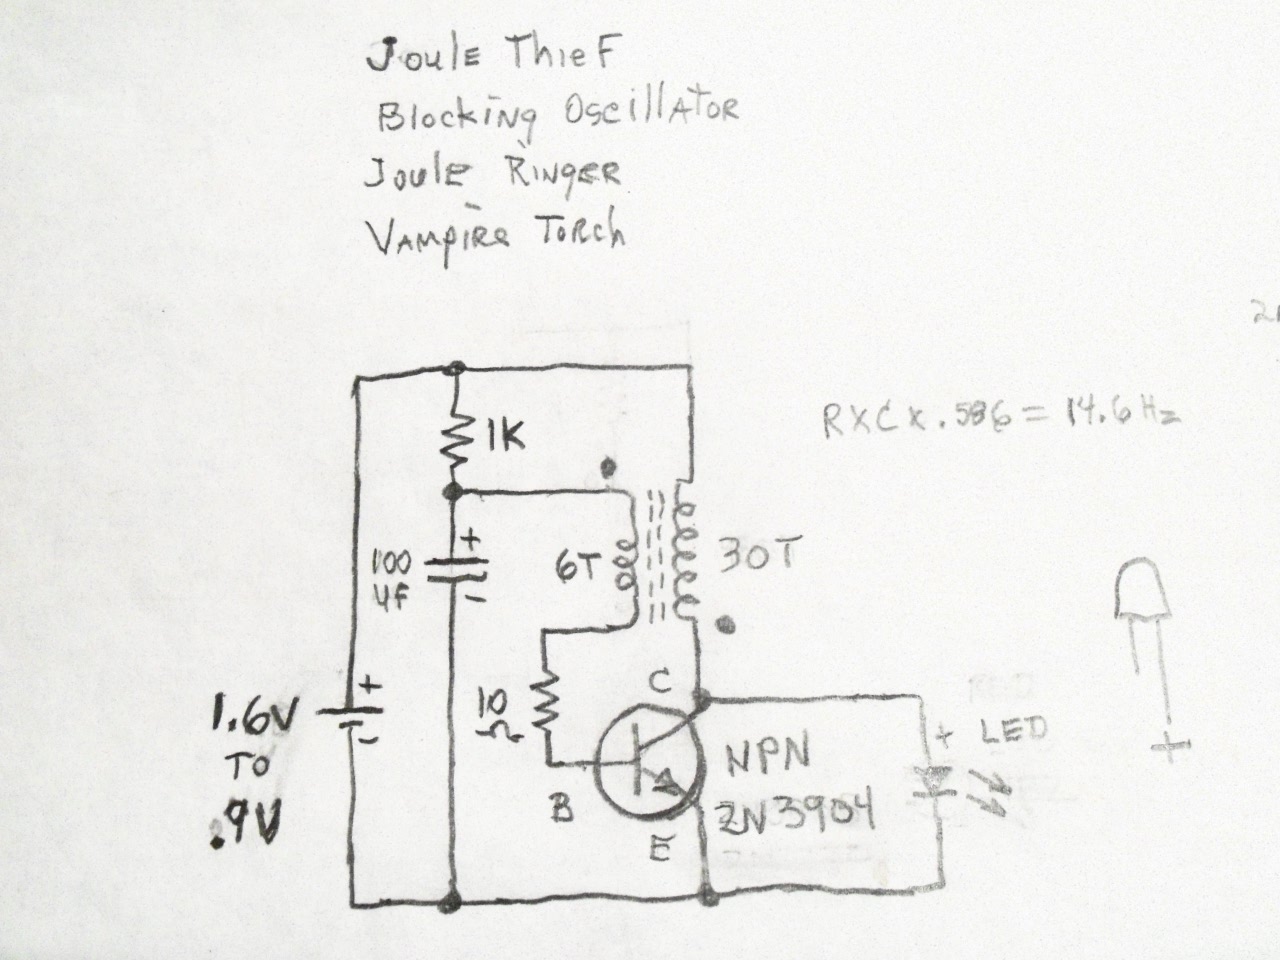 Joule Thief
Blocking Oscillator
Joule Ringer
Vampire Torch
RXCX.586=14.6Hz
1K
+
100
uf
-
6T
30T
+
1.6V
To
.9V
-
10
Ω
C
B
E
NPN
2N3904
+ LED
+